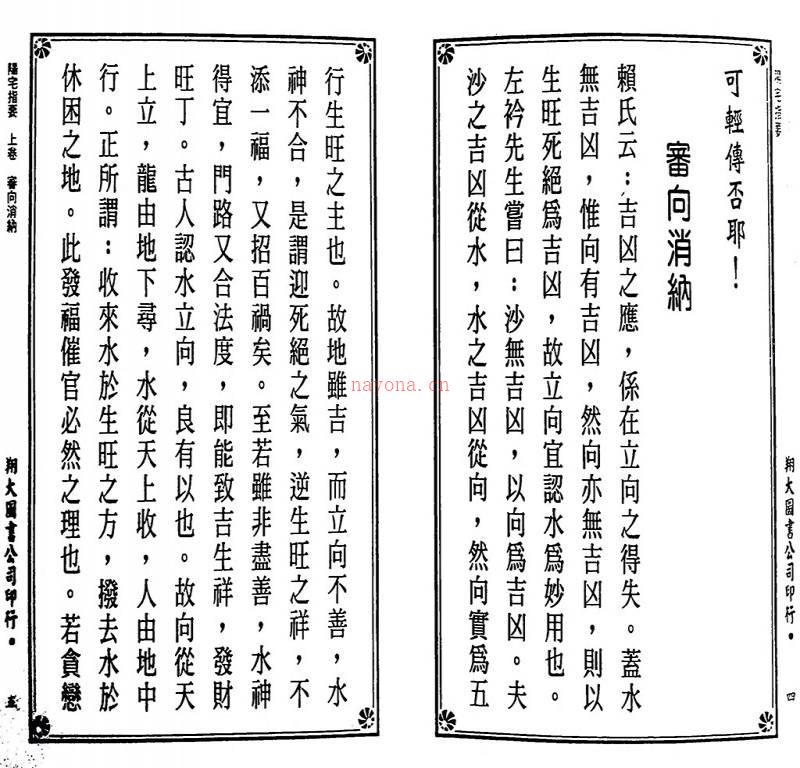 可輕傳否耶！
審向消納
賴氏云：吉凶之應，係在立向之得失。蓋水
無吉凶，惟向有吉凶，然向亦無吉凶，則以
生旺死絕爲吉凶，故立向宜認水爲妙用也。
左衿先生嘗曰：沙無吉凶，以向爲吉凶。夫
沙之吉凶從水，水之吉凶從向，然向實爲五
翔大圖書公司印行。
四
行生旺之主也。故地雖吉，而立向不善，水
神不合，是謂迎死絕之氣，逆生旺之祥，不
添一福，又招百禍矣。至若雖非盡善，水神
得宜，門路又合法度，即能致吉生祥，發財
旺丁。古人認水立向，良有以也。故向從天
上立，龍由地下尋，水從天上收，人由地中
行。正所謂：收來水於生旺之方，撥去水於
休困之地。此發福催官必然之理也。若貪戀
陽宅指要 上卷 審向消納
翔大圖書公司印行。
五
nayona.cn